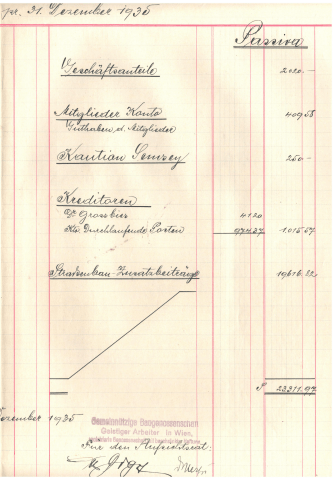 pr. 31. Dezember 1935
Passiva
Geschäftsanteile 2020.—
Mitglieder Konto 409 58
Guthaben d. Mitglieder
Kaution 250.—
Kreditoren
41 20
Kto. Durchlaufende Posten 974 37 1.015 57
Strassenbau-Zusatzbeiträge 19616.82
S 23311.97
Dezember 1935
Gemeinnützige Baugenossenschaft
Geistiger Arbeiter in Wien,
Für den Aufsichtsrat: